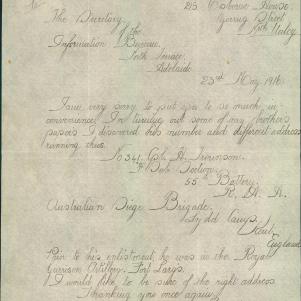 The Secretary
of the
Information Bureau
North Terrace
Adelaide
215 Osborne House
George Street
North Unley
23rd May 1916
I am very sorry to put you to so much in-
convenience. In turning out some of my brother's
papers I discovered his number and different address
running thus.
No 341 Gnr. H.
55th Battery
R. A. A.
Australian Siege Brigade
Lydd Camp
Kent
England
Prior to his enlistment he was in the Royal
Garrison Artillery, Fort Largs.
I would like to be sure of the right address
Thanking you once again